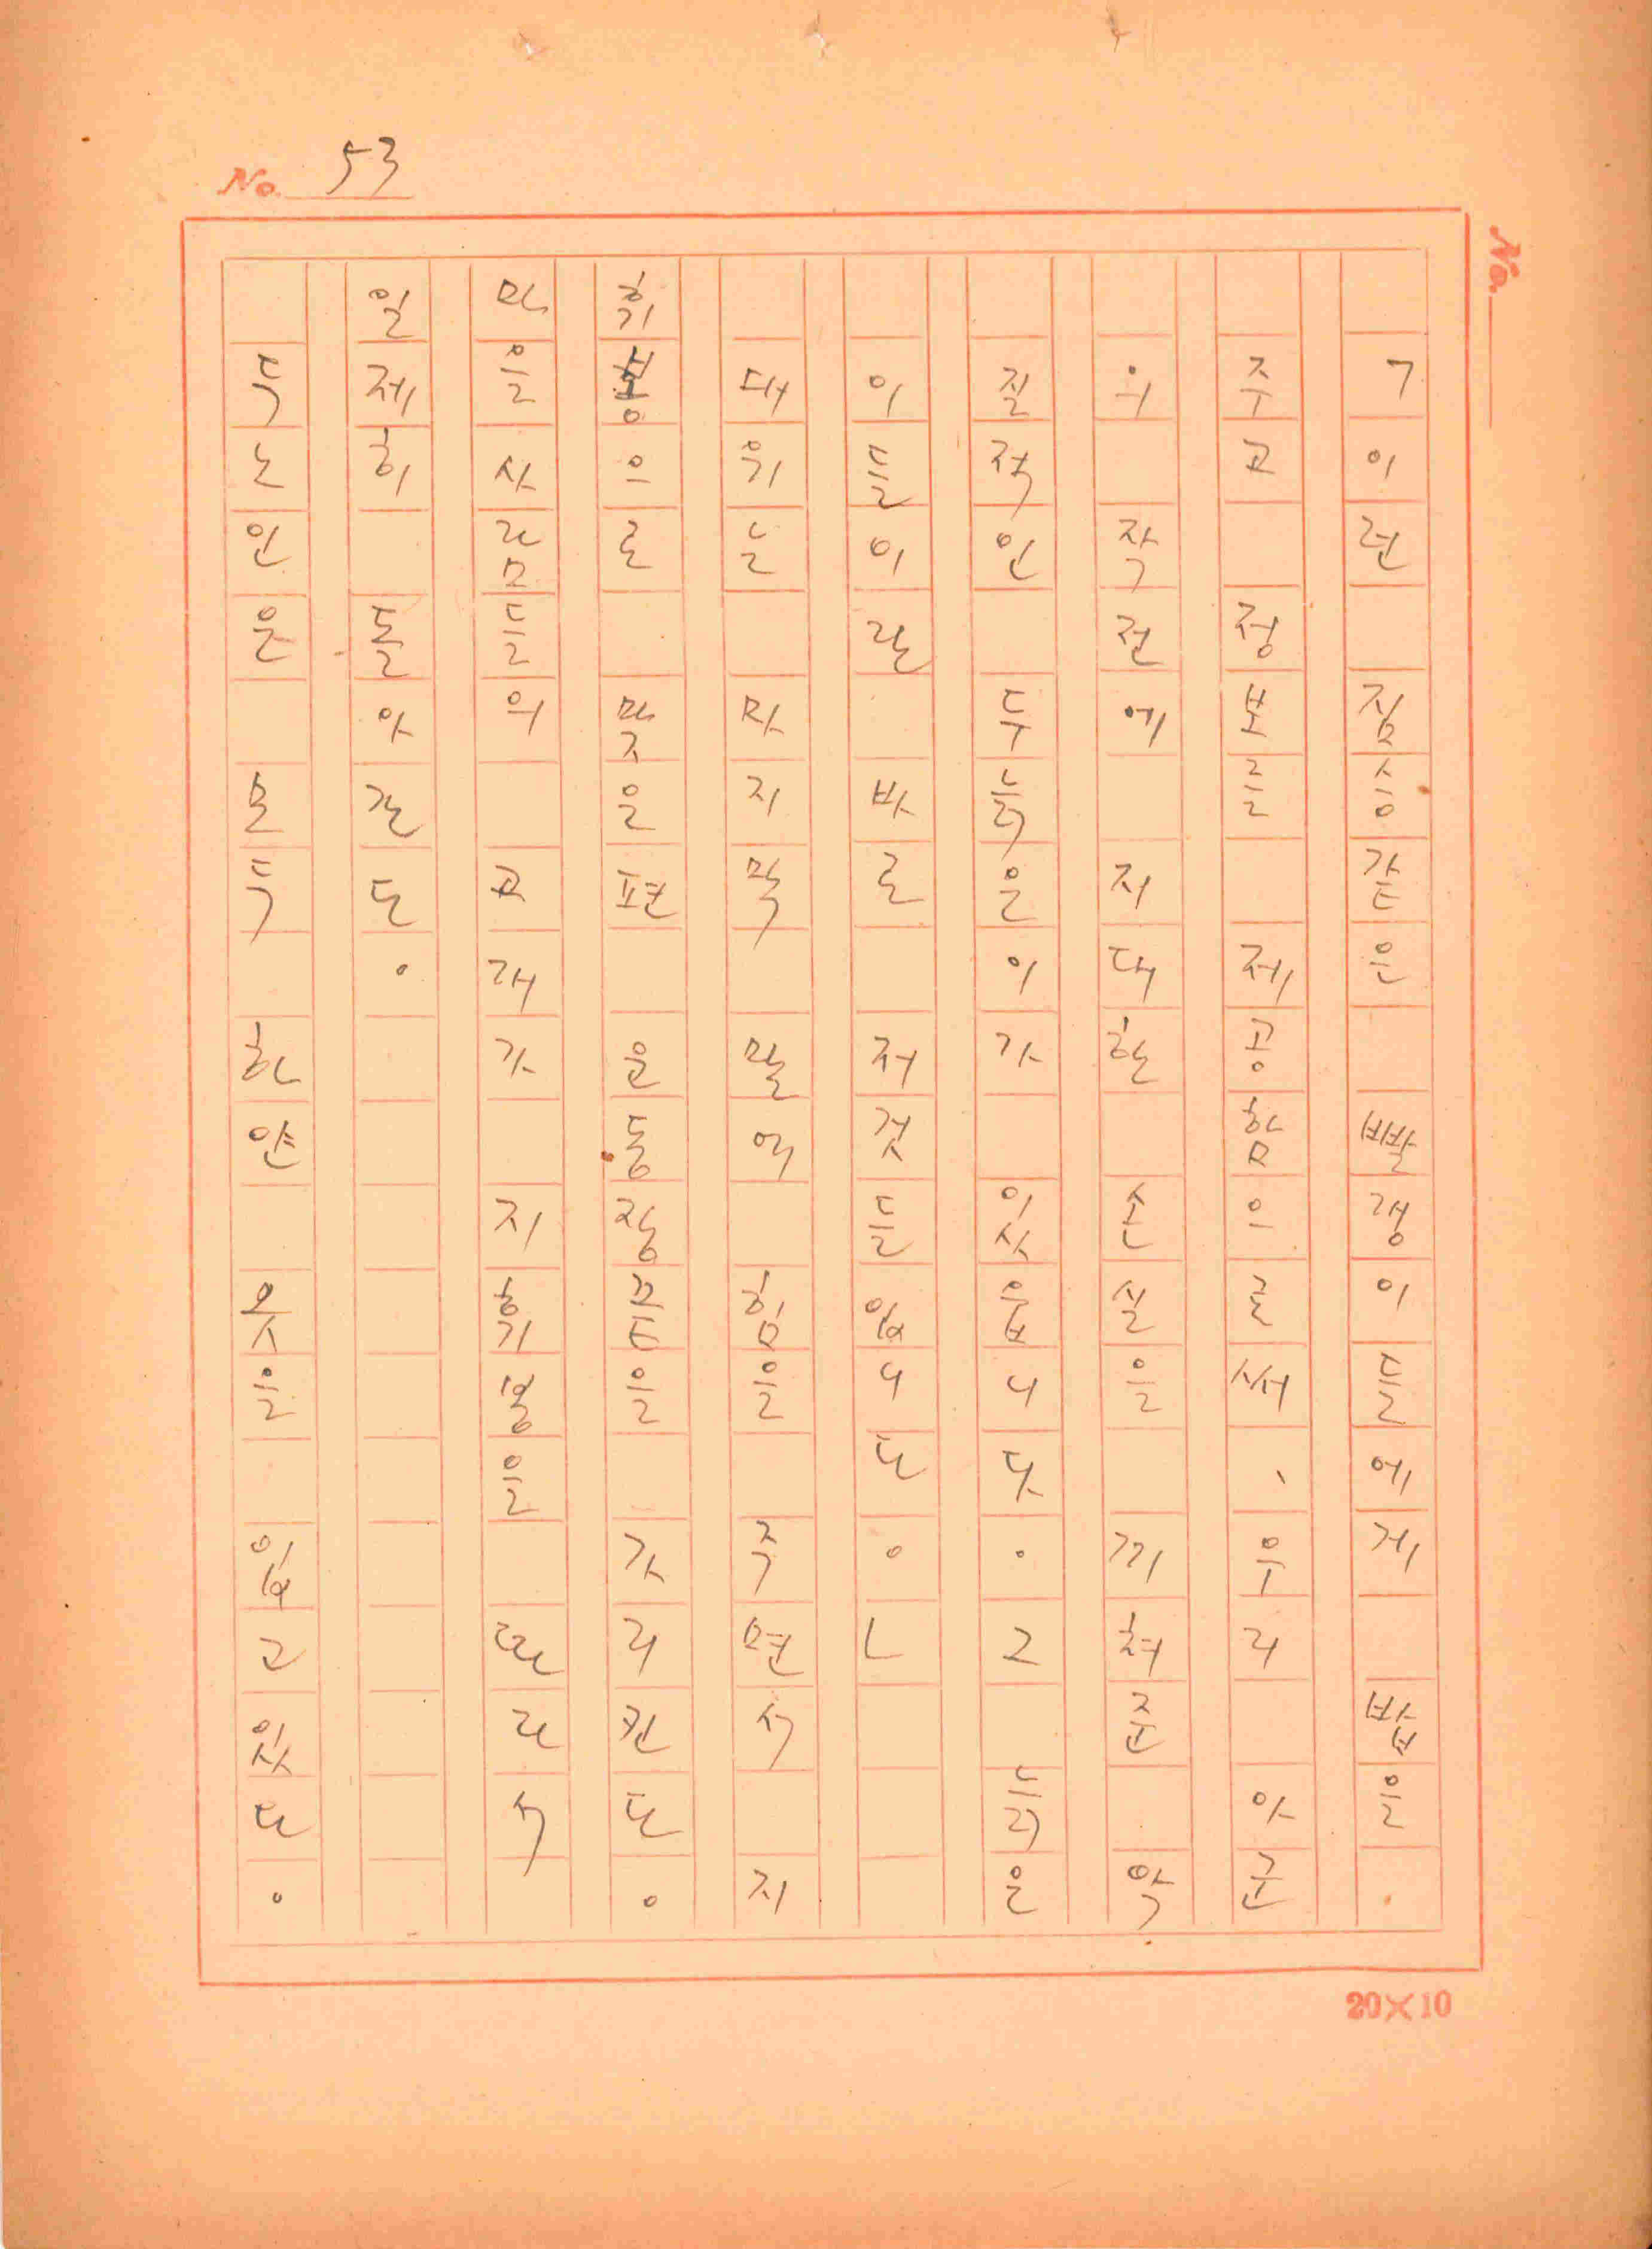 「이런 짐승같은 빨갱이들에게 밥을
주고 정보를 제공함으로써, 우리 아군
의 작전에 지대한 손실을 끼쳐준 악
질적인 두 늙은이가 있읍니다. 그 늙은
이들이란 바로 저것들입니다.」
대위는 마지막 말에 힘을 주면서 지
휘봉으로 맞은편 운동장끝을 가리킨다.
마을사람들의 고개가 지휘봉을 따라서
일제히 돌아간다.
두 노인은 모두 하얀 옷을 입고 있다.
No. 53
No.
20×10